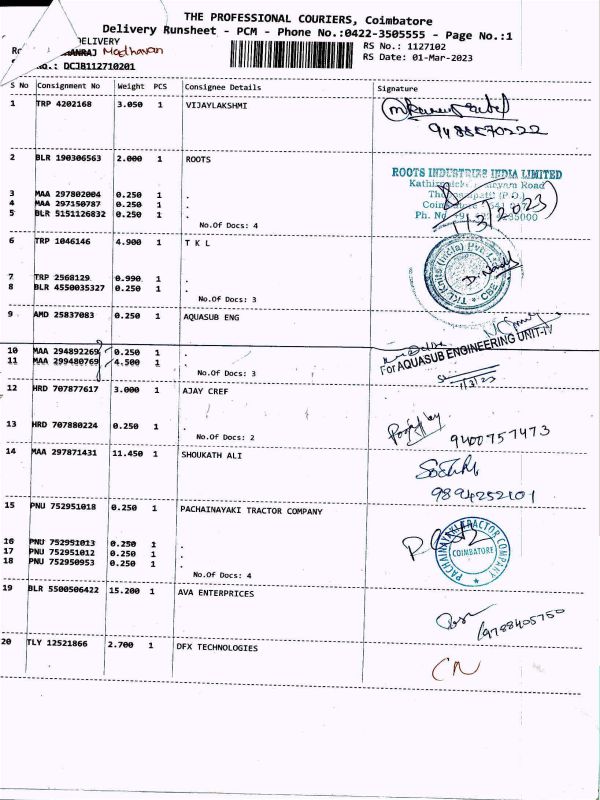 THE PROFESSIONAL COURIERS, Coimbatore
Delivery Runsheet - PCM - Phone No.:0422-3505555 - Page No.:1
DELIVERY
RS No.: 1127102
Madhavan
RS Date: 01-Mar-2023
No.: DCJB112710201
S No Consignment No Weight PCS Consignee Details Signature
1 TRP 4202168 3.050 1 VIJAYLAKSHMI
9488870222
2 BLR 190306563 2.000 1 ROOTS
ROOTS INDUSTRIES INDIA LIMITED
3 MAA 297802004 0.250 1 .
4 MAA 297150787 0.250 1 .
5 BLR 5151126832 0.250 1 .
1/3/2023
No.Of Docs: 4
6 TRP 1046146 4.900 1 T K L
TKL Knits (India) Pvt. CBE
7 TRP 2568129 0.990 1 .
8 BLR 4550035327 0.250 1 .
No.Of Docs: 3
9 AMD 25837083 0.250 1 AQUASUB ENG
For AQUASUB ENGINEERING UNIT-IV
10 MAA 294892269 0.250 1 .
11 MAA 299480769 4.500 1 .
No.Of Docs: 3
1/3/23
12 HRD 707877617 3.000 1 AJAY CREF
13 HRD 707880224 0.250 1 .
No.Of Docs: 2
9400757473
14 MAA 297871431 11.450 1 SHOUKATH ALI
9894252101
15 PNU 752951018 0.250 1 PACHAINAYAKI TRACTOR COMPANY
PACHAINAYAKI TRACTOR COMPANY
COIMBATORE
16 PNU 752951013 0.250 1 .
17 PNU 752951012 0.250 1 .
18 PNU 752950953 0.250 1 .
No.Of Docs: 4
19 BLR 5500506422 15.200 1 AVA ENTERPRICES
9788405750
20 TLY 12521866 2.700 1 DFX TECHNOLOGIES
CN